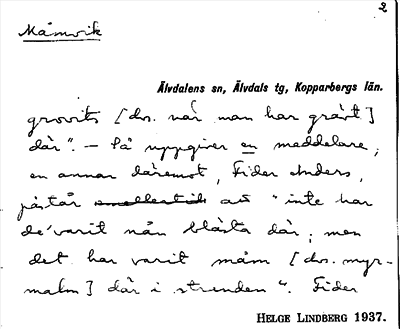 2
Måmvik
Älvdalens sn, Älvdals tg, Kopparbergs län.
grovits [dvs. når man har grävt]
där". — Så uppgiver en meddelare;
en annan däremot, Fider Anders,
påstår emellertid att "inte har
de' varit nån blåsta där; men
det har varit måm [dvs. myr-
malm] där i stranden". Fider
HELGE LINDBERG 1937.